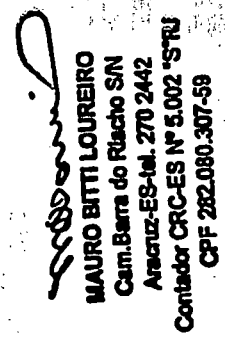 MAURO BITTI LOUREIRO
Cam.Barra do Riacho S/N
Aracruz-ES-tel. 270 2442
Contador CRC-ES Nº 5.002 "S"RJ
CPF 282.080.307-59